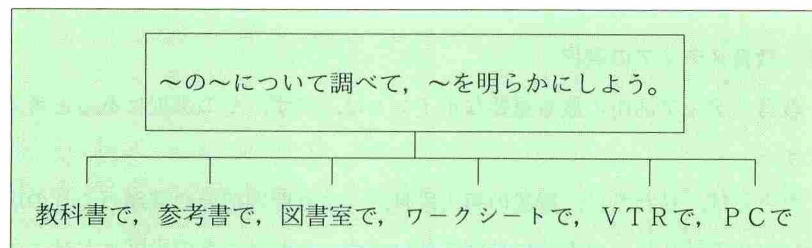 ～の～について調べて，～を明らかにしよう。
教科書で，参考書で，図書室で，ワークシートで，ＶＴＲで，ＰＣで